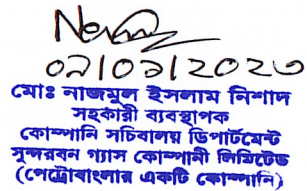 ০৯/০১/২০২৩
মোঃ নাজমুল ইসলাম নিশাদ
সহকারী ব্যবস্থাপক
কোম্পানি সচিবালয় ডিপার্টমেন্ট
সুন্দরবন গ্যাস কোম্পানী লিমিটেড
(পেট্রোবাংলার একটি কোম্পানি)